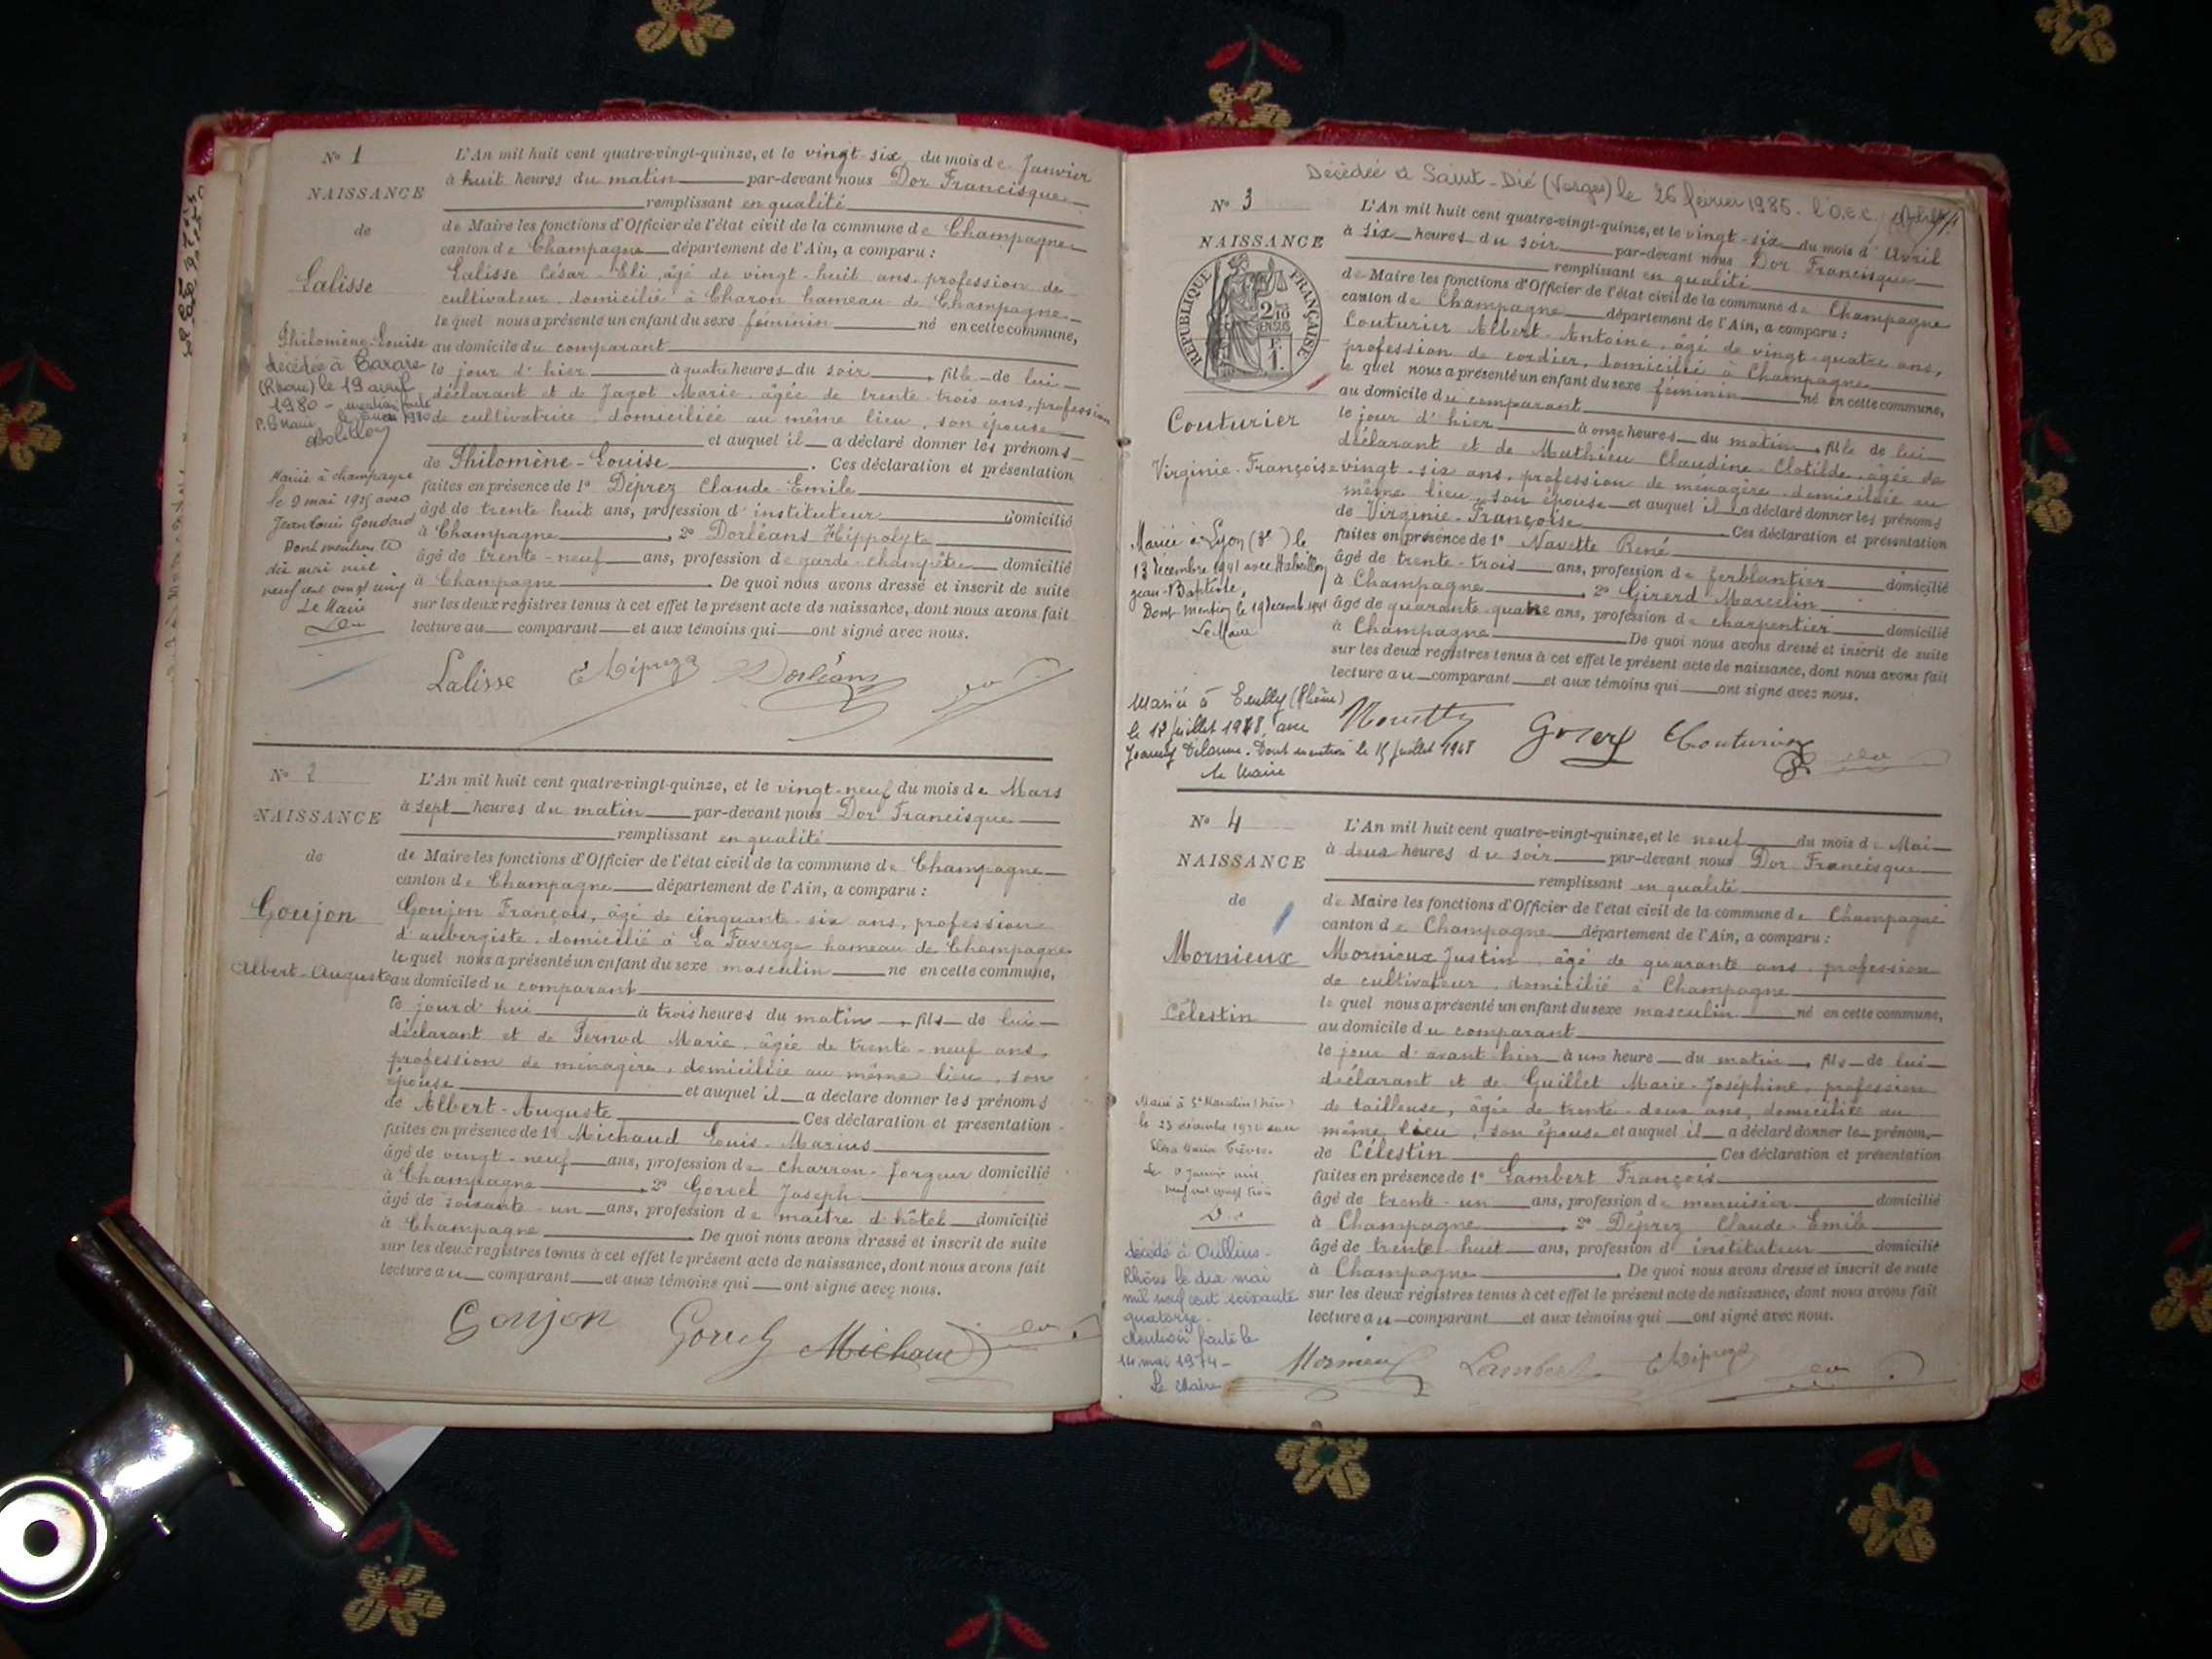 N° 1
NAISSANCE
de
Lalisse
Philomène-Louise
décédée à Tarare
(Rhône) le 19 avril
1980 - mention faite
P. le Maire
Mariée à Champagne
le 9 mai 1925 avec
Jean Louis Goudard
Dont mention le
dix mai mil
neuf cent vingt cinq
Le Maire
L'An mil huit cent quatre-vingt-quinze, et le vingt-six du mois de Janvier
à huit heures du matin par-devant nous Dor Francisque
remplissant en qualité
de Maire les fonctions d'Officier de l'état civil de la commune de Champagne
canton de Champagne département de l'Ain, a comparu :
Lalisse César-Eli, âgé de vingt-huit ans, profession de
cultivateur, domicilié à Charon hameau de Champagne
lequel nous a présenté un enfant du sexe féminin né en cette commune,
au domicile du comparant
le jour d'hier à quatre heures du soir, fille de lui
déclarant et de Jagot Marie, âgée de trente-trois ans, profession
de cultivatrice, domiciliée au même lieu, son épouse
et auquel il a déclaré donner les prénoms
de Philomène-Louise. Ces déclaration et présentation
faites en présence de 1° Déprez Claude-Emile
âgé de trente huit ans, profession d'instituteur domicilié
à Champagne, 2° Dorléans Hippolyte
âgé de trente-neuf ans, profession de garde-champêtre domicilié
à Champagne. De quoi nous avons dressé et inscrit de suite
sur les deux registres tenus à cet effet le présent acte de naissance, dont nous avons fait
lecture au comparant et aux témoins qui ont signé avec nous.
Lalisse E Déprez Dorléans
N° 2
NAISSANCE
de
Goujon
Albert-Auguste
L'An mil huit cent quatre-vingt-quinze, et le vingt-neuf du mois de Mars
à sept heures du matin par-devant nous Dor Francisque
remplissant en qualité
de Maire les fonctions d'Officier de l'état civil de la commune de Champagne
canton de Champagne département de l'Ain, a comparu :
Goujon François, âgé de cinquante-six ans, profession
d'aubergiste, domicilié à La Faverge hameau de Champagne
lequel nous a présenté un enfant du sexe masculin né en cette commune,
au domicile du comparant
ce jourd'hui à trois heures du matin, fils de lui
déclarant et de Pernod Marie, âgée de trente-neuf ans,
profession de ménagère, domiciliée au même lieu, son
épouse et auquel il a déclaré donner les prénoms
de Albert-Auguste Ces déclaration et présentation
faites en présence de 1° Michaud Louis-Marius
âgé de vingt-neuf ans, profession de charron-forgeur domicilié
à Champagne, 2° Gorrel Joseph
âgé de soixante-un ans, profession de maître d'hôtel domicilié
à Champagne. De quoi nous avons dressé et inscrit de suite
sur les deux registres tenus à cet effet le présent acte de naissance, dont nous avons fait
lecture au comparant et aux témoins qui ont signé avec nous.
Goujon Michaud
Décédée à Saint-Dié (Vosges) le 26 février 1985. l'O.e.c.
N° 3
NAISSANCE
REPUBLIQUE FRANÇAISE
2/10
EN SUS
Couturier
Virginie-Françoise
Mariée à Lyon (3e) le
13 décembre 1941 avec
Jean-Baptiste,
Dont mention le 19 décemb. 1941
Le Maire
Mariée à Ecully (Rhône)
le 12 juillet 1948, avec
Delaume. Dont mention le 15 juillet 1948
le Maire
L'An mil huit cent quatre-vingt-quinze, et le vingt-six du mois d'Avril
à six heures du soir par-devant nous Dor Francisque
remplissant en qualité
de Maire les fonctions d'Officier de l'état civil de la commune de Champagne
canton de Champagne département de l'Ain, a comparu :
Couturier Albert-Antoine, âgé de vingt-quatre ans,
profession de cordier, domicilié à Champagne
lequel nous a présenté un enfant du sexe féminin né en cette commune,
au domicile du comparant
le jour d'hier à onze heures du matin, fille de lui
déclarant et de Mathieu Claudine-Clotilde, âgée de
vingt-six ans, profession de ménagère, domiciliée au
même lieu, son épouse et auquel il a déclaré donner les prénoms
de Virginie-Françoise Ces déclaration et présentation
faites en présence de 1° Navette René
âgé de trente-trois ans, profession de ferblantier domicilié
à Champagne, 2° Girerd Marcelin
âgé de quarante-quatre ans, profession de charpentier domicilié
à Champagne De quoi nous avons dressé et inscrit de suite
sur les deux registres tenus à cet effet le présent acte de naissance, dont nous avons fait
lecture au comparant et aux témoins qui ont signé avec nous.
Couturier
N° 4
NAISSANCE
de
Mornieux
Célestin
le 23 décembre
mil
neuf cent vingt trois
décédé à Oullins-
Rhône le dix mai
mil neuf cent soixante
quatorze.
Mention faite le
14 mai 1974-
Le Maire
L'An mil huit cent quatre-vingt-quinze, et le neuf du mois de Mai
à deux heures du soir par-devant nous Dor Francisque
remplissant en qualité
de Maire les fonctions d'Officier de l'état civil de la commune de Champagne
canton de Champagne département de l'Ain, a comparu :
Mornieux Justin, âgé de quarante ans, profession
de cultivateur, domicilié à Champagne
lequel nous a présenté un enfant du sexe masculin né en cette commune,
au domicile du comparant
le jour d'avant-hier à une heure du matin, fils de lui
déclarant et de Guillet Marie-Joséphine, profession
de tailleuse, âgée de trente-deux ans, domiciliée au
même lieu, son épouse et auquel il a déclaré donner le prénom
de Célestin Ces déclaration et présentation
faites en présence de 1° Lambert François
âgé de trente-un ans, profession de menuisier domicilié
à Champagne, 2° Déprez Claude-Emile
âgé de trente-huit ans, profession d'instituteur domicilié
à Champagne. De quoi nous avons dressé et inscrit de suite
sur les deux registres tenus à cet effet le présent acte de naissance, dont nous avons fait
lecture au comparant et aux témoins qui ont signé avec nous.
Mornieux Lambert E Déprez